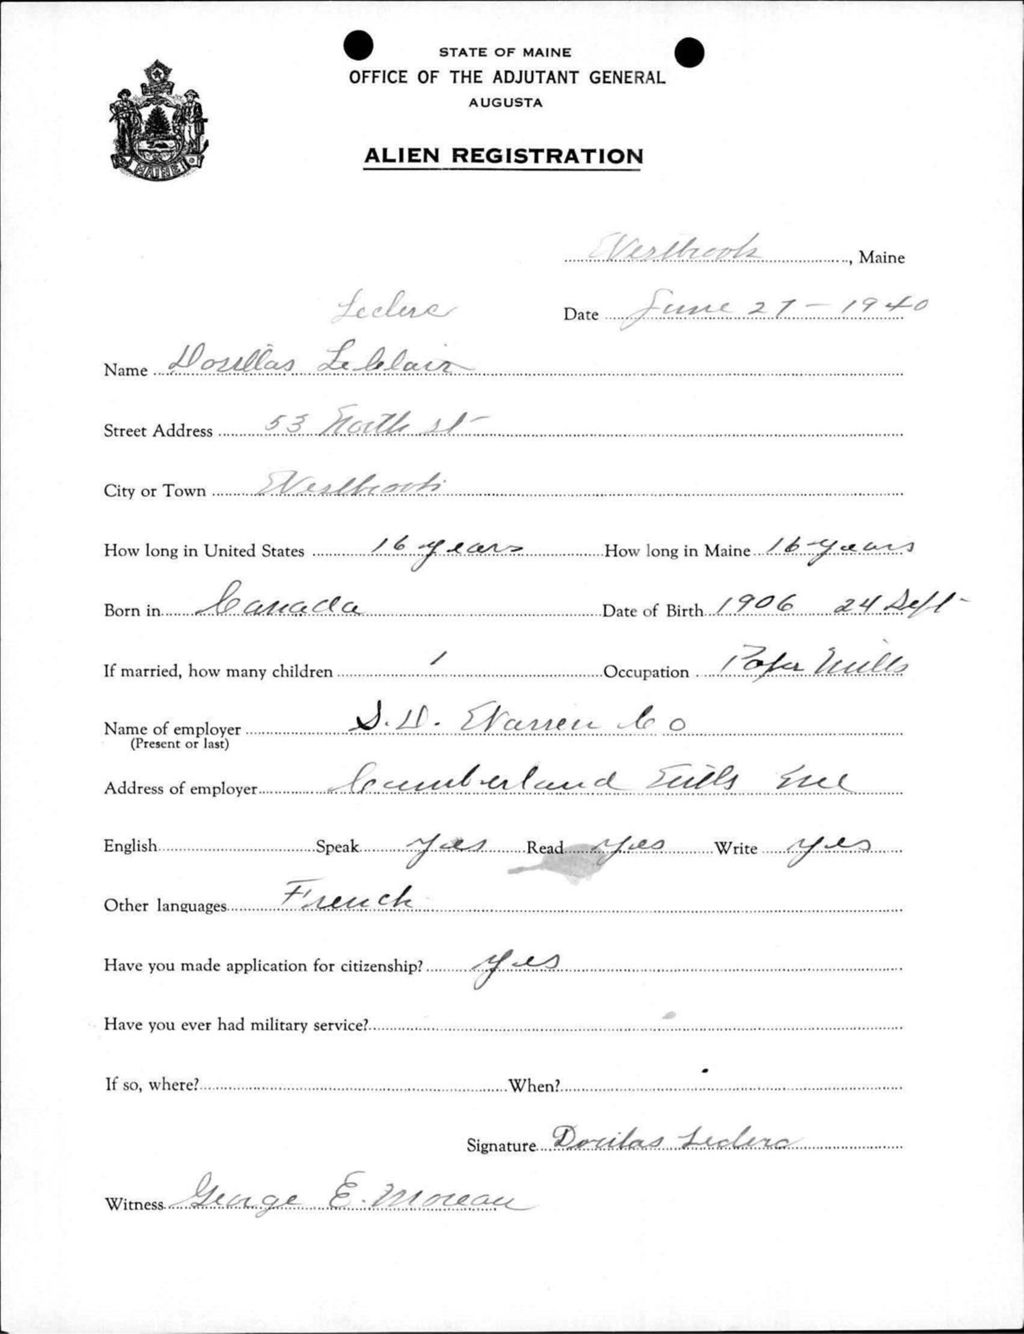 STATE OF MAINE
OFFICE OF THE ADJUTANT GENERAL
AUGUSTA
ALIEN REGISTRATION
MAINE
Westbrook, Maine
Leclerc
Date June 27 - 1940
Name Dosillas LeClair
Street Address 53 North st
City or Town Westbrook
How long in United States 16 years How long in Maine 16 years
Born in Canada Date of Birth 1906 24 Sept
If married, how many children 1 Occupation Paper Mills
Name of employer S. D. Warren Co
(Present or last)
Address of employer Cumberland Mills Me
English Speak yes Read yes Write yes
Other languages French
Have you made application for citizenship? yes
Have you ever had military service?
If so, where? When?
Signature Dorilas Leclerc
Witness George E. Moreau